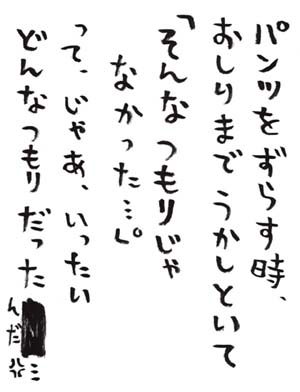 パンツをずらす時、
おしりまでうかしといて
「そんなつもりじゃ
なかった…。」
って、じゃあ、いったい
どんなつもりだった
んだ…